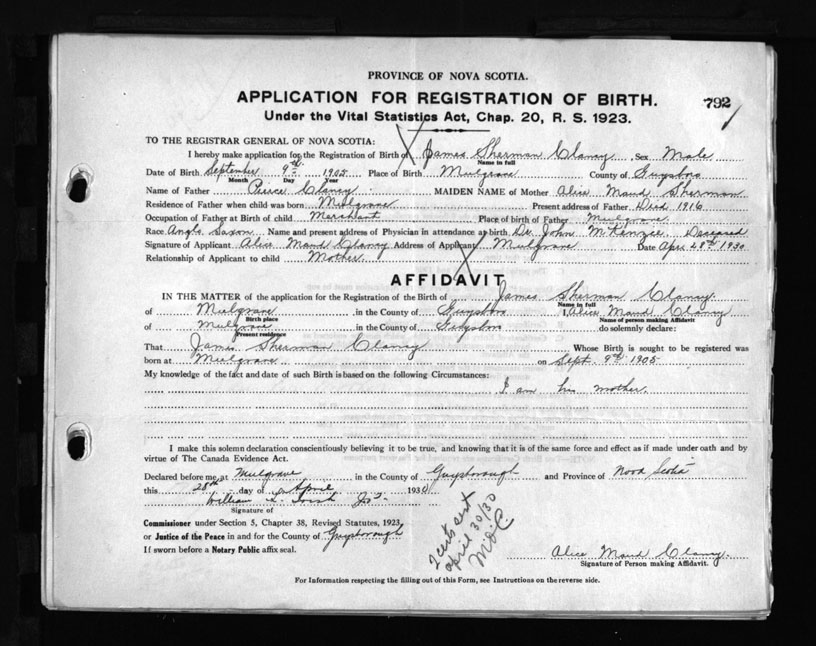 PROVINCE OF NOVA SCOTIA.
APPLICATION FOR REGISTRATION OF BIRTH.
792
Under the Vital Statistics Act, Chap. 20, R. S. 1923.
TO THE REGISTRAR GENERAL OF NOVA SCOTIA:
I hereby make application for the Registration of Birth of James Sherman Clancy Sex Male
Name in full
Date of Birth September 9th 1905 Place of Birth Mulgrave County of Guysboro
Month Day Year
Name of Father Peirce Clancy MAIDEN NAME of Mother Alice Maud Sherman
Residence of Father when child was born Mulgrave Present address of Father Died 1916
Occupation of Father at Birth of child Merchant Place of birth of Father Mulgrave
Race Anglo Saxon Name and present address of Physician in attendance at birth Dr. John McKenzie Deceased
Signature of Applicant Alice Maud Clancy Address of Applicant Mulgrave Date Apr 28th 1930
Relationship of Applicant to child Mother
AFFIDAVIT
IN THE MATTER of the application for the Registration of the Birth of James Sherman Clancy
Name in full
of Mulgrave in the County of Guysboro I, Alice Maud Clancy
Birth place Name of person making Affidavit
of Mulgrave in the County of Guysboro do solemnly declare:
Present residence
That James Sherman Clancy Whose Birth is sought to be registered was
born at Mulgrave on Sept. 9th 1905
My knowledge of the fact and date of such Birth is based on the following Circumstances:
I am his mother.
I make this solemn declaration conscientiously believing it to be true, and knowing that it is of the same force and effect as if made under oath and by
virtue of The Canada Evidence Act.
Declared before me at Mulgrave in the County of Guysborough and Province of Nova Scotia
this 28th day of April 1930
William
Signature of
Commissioner under Section 5, Chapter 38, Revised Statutes, 1923,
or Justice of the Peace in and for the County of Guysborough
If sworn before a Notary Public affix seal.
2 certs sent
April 30/30
Alice Maud Clancy
Signature of Person making Affidavit.
For Information respecting the filling out of this Form, see Instructions on the reverse side.